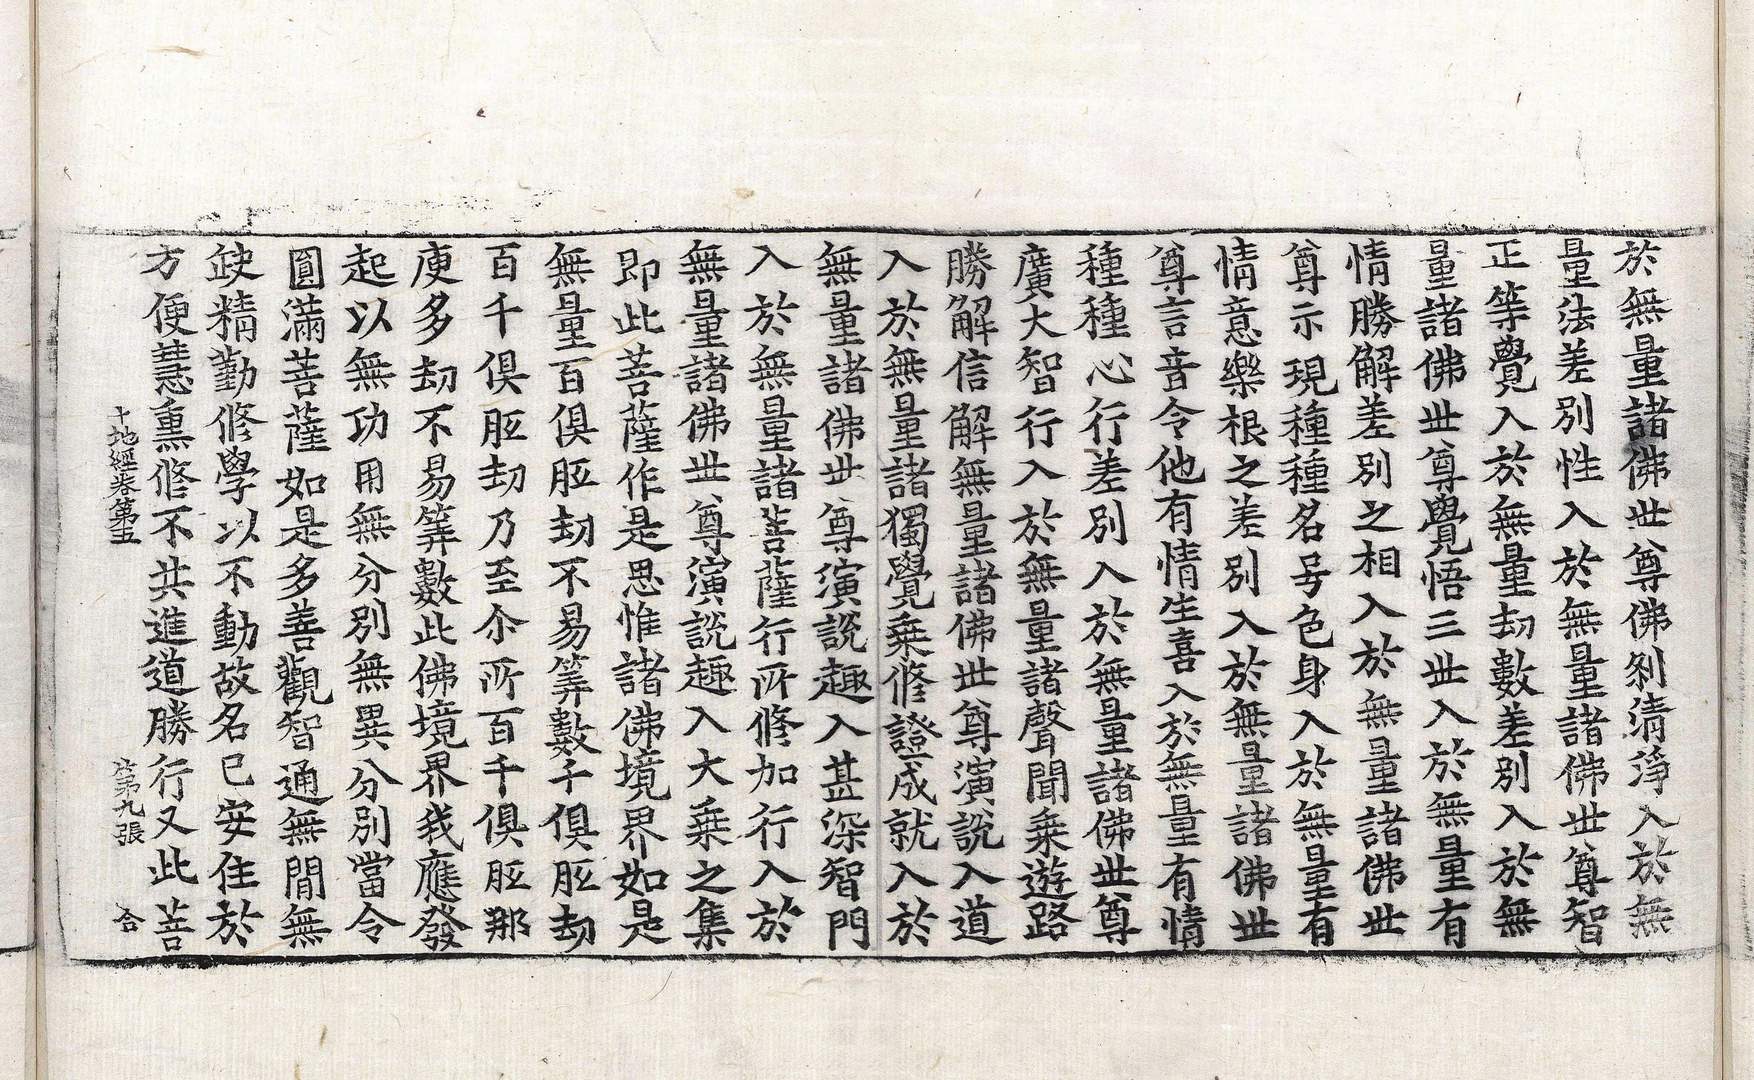 於無量諸佛世尊佛刹清淨入於無
量法差別性入於無量諸佛世尊智
正等覺入於無量劫數差別入於無
量諸佛世尊覺悟三世入於無量有
情勝解差別之相入於無量諸佛世
尊示現種種名号色身入於無量有
情意樂根之差別入於無量諸佛世
尊言音令他有情生喜入於無量有情
種種心行差別入於無量諸佛世尊
廣大智行入於無量諸聲聞乗遊路
勝解信解無量諸佛世尊演說入道
入於無量諸獨覺乗修證成就入於
無量諸佛世尊演說趣入甚深智門
入於無量諸菩薩行所修加行入於
無量諸佛世尊演說趣入大乗之集
即此菩薩作是思惟諸佛境界如是
無量百俱胝劫不易筭數千俱胝劫
百千俱胝劫乃至尒所百千俱胝那
庾多劫不易筭數此佛境界我應發
起以無功用無分別無異分別當令
圓滿菩薩如是多善觀智通無間無
缺精勤修學以不動故名已安住於
方便慧熏修不共進道勝行又此菩
十地經卷第五 第九張 合